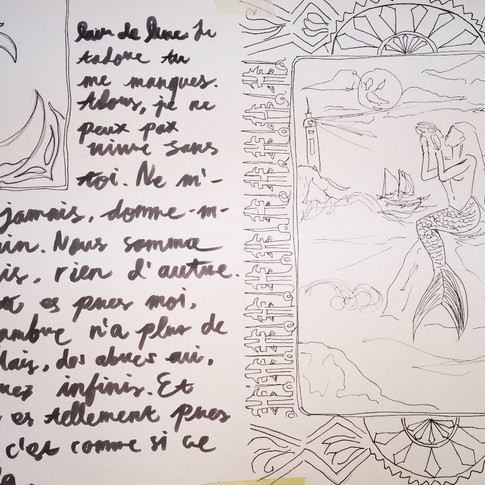 lair de lune Je
t'adore tu
me manques.
Alors, je ne
peux pas
vivre sans
toi. Ne m'-
jamais, donne-m-
ain. Nous somme
is, rien d'autre.
es pres moi,
ambre n'a plus de
lais, des abres aui,
infinis. Et
es tellement pres
c'est comme si ce